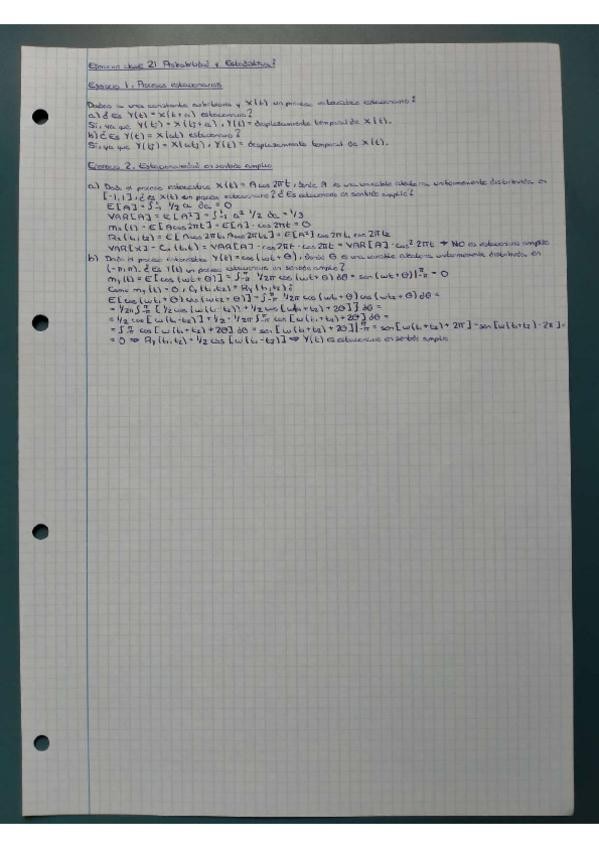 Ejercicios clase 21 Probabilidad y Estadística
Ejercicio 1. Procesos estacionarios
Dados a una constante arbitraria y X(t) un proceso estocástico estacionario:
a) ¿Es Y(t) = X(t+a) estacionario?
Sí, ya que Y(tj) = X(tj+a), Y(t) = desplazamiento temporal de X(t).
b) ¿Es Y(t) = X(at) estacionario?
Sí, ya que Y(tj) = X(atj), Y(t) = desplazamiento temporal de X(t).
Ejercicio 2. Estacionariedad en sentido amplio
a) Dado el proceso estocástico X(t) = A cos 2πt, donde A es una variable aleatoria uniformemente distribuida en
[-1,1], ¿es X(t) un proceso estacionario? ¿Es estacionario en sentido amplio?
E[A] = ∫₋₁¹ 1/2 a da = 0
VAR[A] = E[A²] = ∫₋₁¹ a² 1/2 da = 1/3
mx(t) = E[A cos 2πt] = E[A] · cos 2πt = 0
Rx(t₁,t₂) = E[A cos 2πt₁ A cos 2πt₂] = E[A²] cos 2πt₁ cos 2πt₂
VAR[X] = Cx(t,t) = VAR[A] · cos 2πt · cos 2πt = VAR[A] · cos² 2πt → No es estacionario amplio
b) Dado el proceso estocástico Y(t) = cos(ωt+θ), donde θ es una variable aleatoria uniformemente distribuida en
(-π,π), ¿Es Y(t) un proceso estacionario en sentido amplio?
my(t) = E[cos(ωt+θ)] = ∫₋π^π 1/2π cos(ωt+θ) dθ = sen(ωt+θ)|₋π^π = 0
Como my(t) = 0, Cy(t₁,t₂) = Ry(t₁,t₂):
E[cos(ωt₁+θ) cos(ωt₂+θ)] = ∫₋π^π 1/2π cos(ωt₁+θ) cos(ωt₂+θ) dθ =
= 1/2π ∫₋π^π [1/2 cos(ω(t₁-t₂)) + 1/2 cos[ω(t₁+t₂)+2θ]] dθ =
= 1/2 cos[ω(t₁-t₂)] + 1/2 · 1/2π ∫₋π^π cos[ω(t₁+t₂)+2θ] dθ =
= ∫₋π^π cos[ω(t₁+t₂)+2θ] dθ = sen[ω(t₁+t₂)+2θ]|₋π^π = sen[ω(t₁+t₂)+2π] - sen[ω(t₁+t₂)-2π] =
= 0 ⇒ Ry(t₁,t₂) = 1/2 cos[ω(t₁-t₂)] ⇒ Y(t) es estacionario en sentido amplio